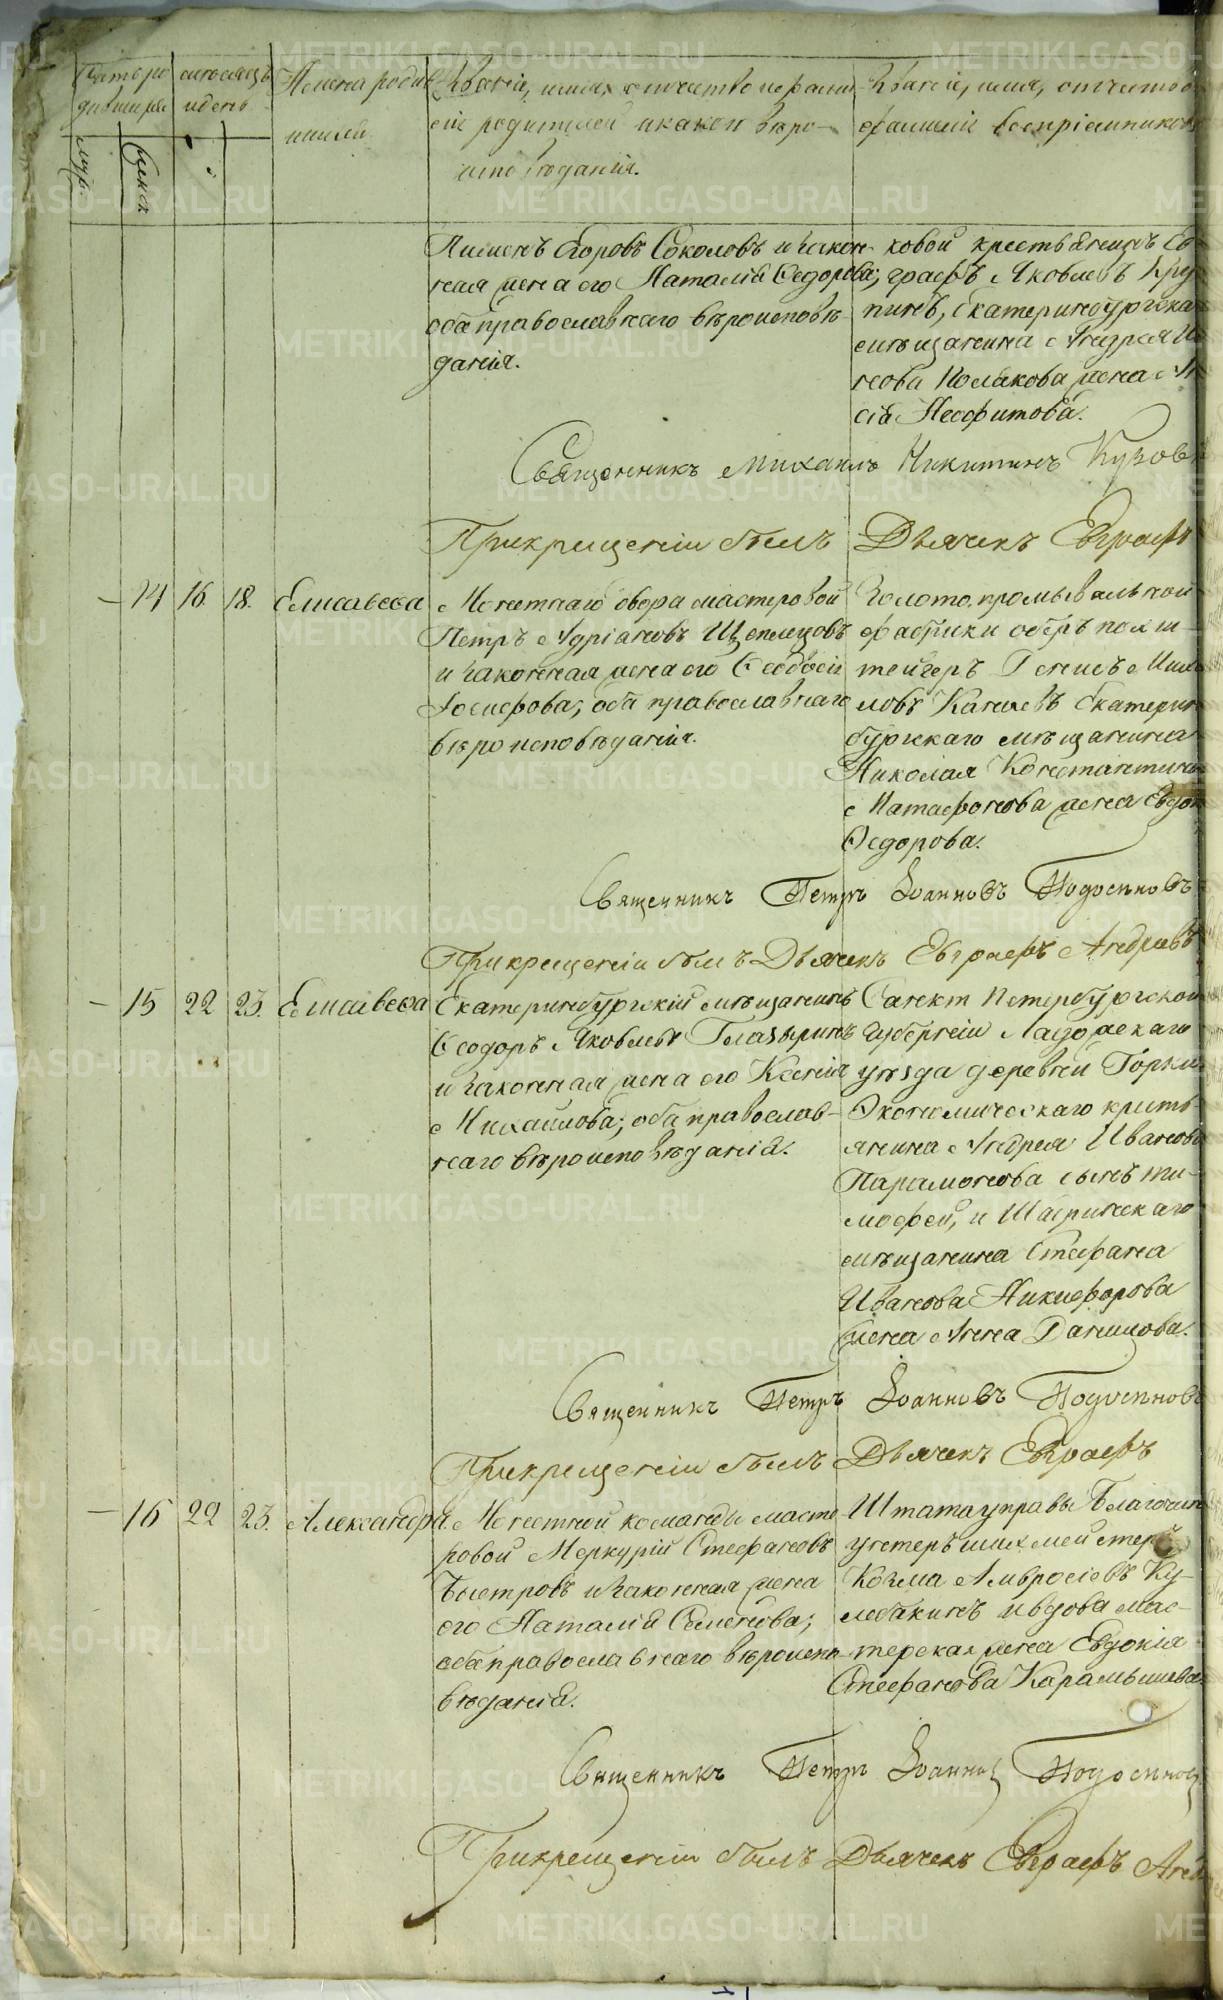 Имена родив
Званіе, имя, отчество и фами
Званіе, имя, отчество
шихся
ліе родителей и какого вѣро-
фамиліе воспріемниковъ
исповѣданія.
муж.
женск
Пименъ Егоровъ Соколовъ и закон-
ная жена его Наталія Ѳедорова;
оба православнаго вѣроисповѣ-
данія.
ковой крестьянинъ Ев
графъ Яковлевъ
пинъ, Екатеринбургска
мѣщанина Андрея
нова Полякова жена
сія Неофитова.
Священникъ Михаилъ Никитинъ
При крещеніи былъ Дьячекъ Евграфъ
14 16. 18. Елисавеѳа
Монетнаго двора мастеровой
Петръ Адріановъ Щеплецовъ
и законная жена его Ѳеодосія
Іосифова; оба православнаго
вѣроисповѣданія.
Золотопромывальной
фабрики оберъ пошш-
тейгеръ Денисъ
ловъ Качаевъ Екатерин
бургскаго мѣщанина
Николая Константинова
Матафонова жена Евдок
Ѳедорова.
Священникъ Петръ Іоанновъ Подосеновъ
При крещеніи былъ Дьячекъ Евграфъ Андреевъ
15 22 23. Елисавеѳа
Екатеринбургскій мѣщанинъ
Ѳеодоръ Яковлевъ Глазыринъ
и законная жена его Ксенія
Михайлова; оба православ-
наго вѣроисповѣданія.
Санкт Петербургской
губерніи Ладожскаго
уѣзда деревни Горки
Экономическаго кресть
янина Андрея Иванова
Парамонова сынъ Ти-
мофей, и Шадринскаго
мѣщанина Стефана
Иванова Никифорова
жена Анна Данилова.
Священникъ Петръ Іоанновъ Подосеновъ
При крещеніи былъ Дьячекъ Евграфъ
16 22 23. Александра
Монетной команды масте
ровой Меркурій Стефановъ
Быстровъ и законная жена
его Наталія Семенова;
оба православнаго вѣроиспо
вѣданія.
Штата управы Благочин
унтеръ шихмейстеръ
Козма Амвросіевъ Ку-
лебакинъ и вдова мас-
терская жена Евдокія
Стефанова Карамышева
Священникъ Петръ Іоанновъ Подосеновъ
При крещеніи былъ Дьячекъ Евграфъ
METRIKI.GASO-URAL.RU